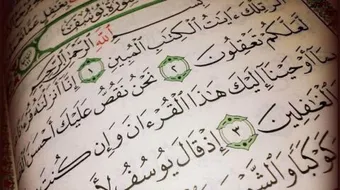 سورة يوسف
الله الرحمن الرحيم
الر تلك ءايت الكتب المبين ١ إنا أنزلنه
لعلكم تعقلون ٢ نحن نقص عليك أحسن
بما أوحينا إليك هذا القرءان وإن كنت
الغفلين ٣ إذ قال يوسف
كوكبا والشمس